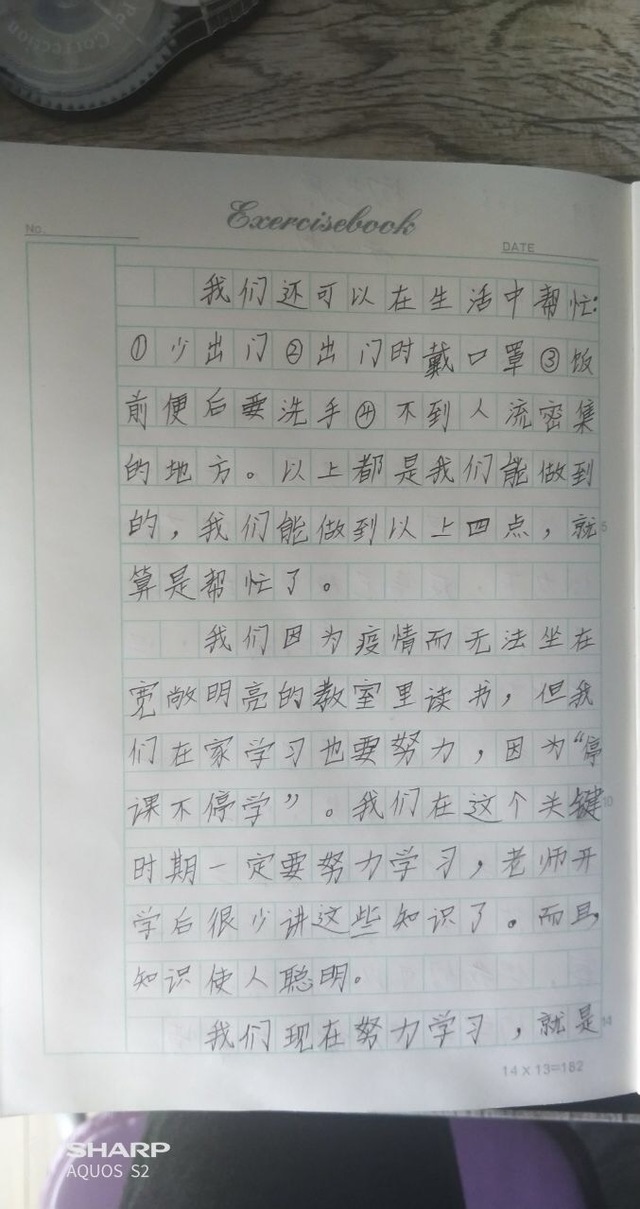 Pet Correction
Exercisebook
No.
DATE
我们还可以在生活中帮忙:
①少出门②出门时戴口罩③饭
前便后要洗手④不到人流密集
的地方。以上都是我们能做到
的，我们能做到以上四点，就
5
算是帮忙了。
我们因为疫情而无法坐在
宽敞明亮的教室里读书，但我
们在家学习也要努力，因为“停
课不停学”。我们在这个关键
10
时期一定要努力学习，老师开
学后很少讲这些知识了。而且，
知识使人聪明。
我们现在努力学习，就是
14
14 x 13=182
SHARP
AQUOS S2